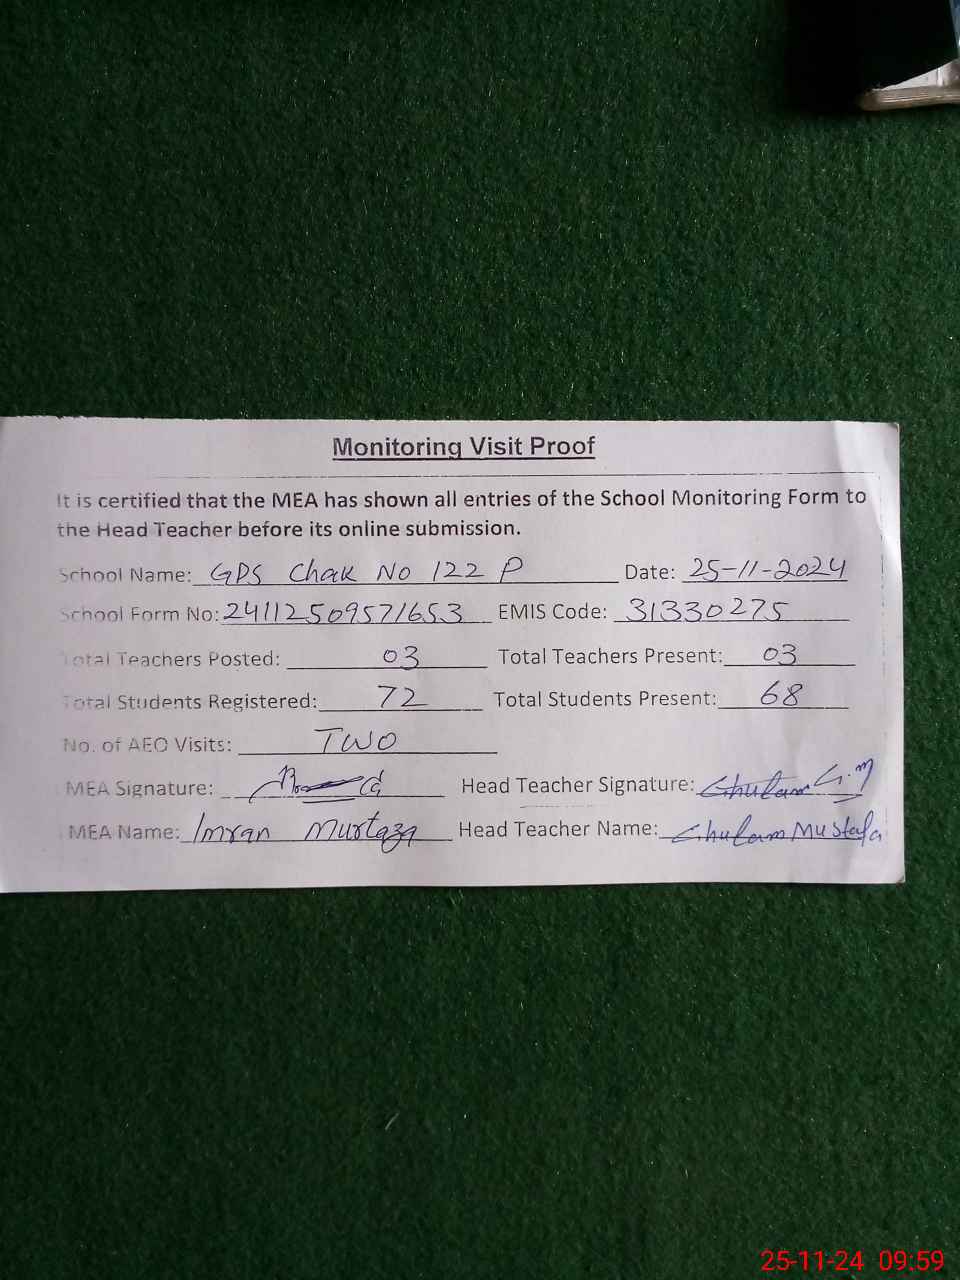 Monitoring Visit Proof
It is certified that the MEA has shown all entries of the School Monitoring Form to
the Head Teacher before its online submission.
School Name: GPS Chak No 122 P Date: 25-11-2024
School Form No: 24112509571653 EMIS Code: 31330275
Total Teachers Posted: 03 Total Teachers Present: 03
Total Students Registered: 72 Total Students Present: 68
No. of AEO Visits: Two
MEA Signature: Head Teacher Signature: Ghulam G.M
MEA Name: Imran Murtaza Head Teacher Name: Ghulam Mustafa
25-11-24 09:59